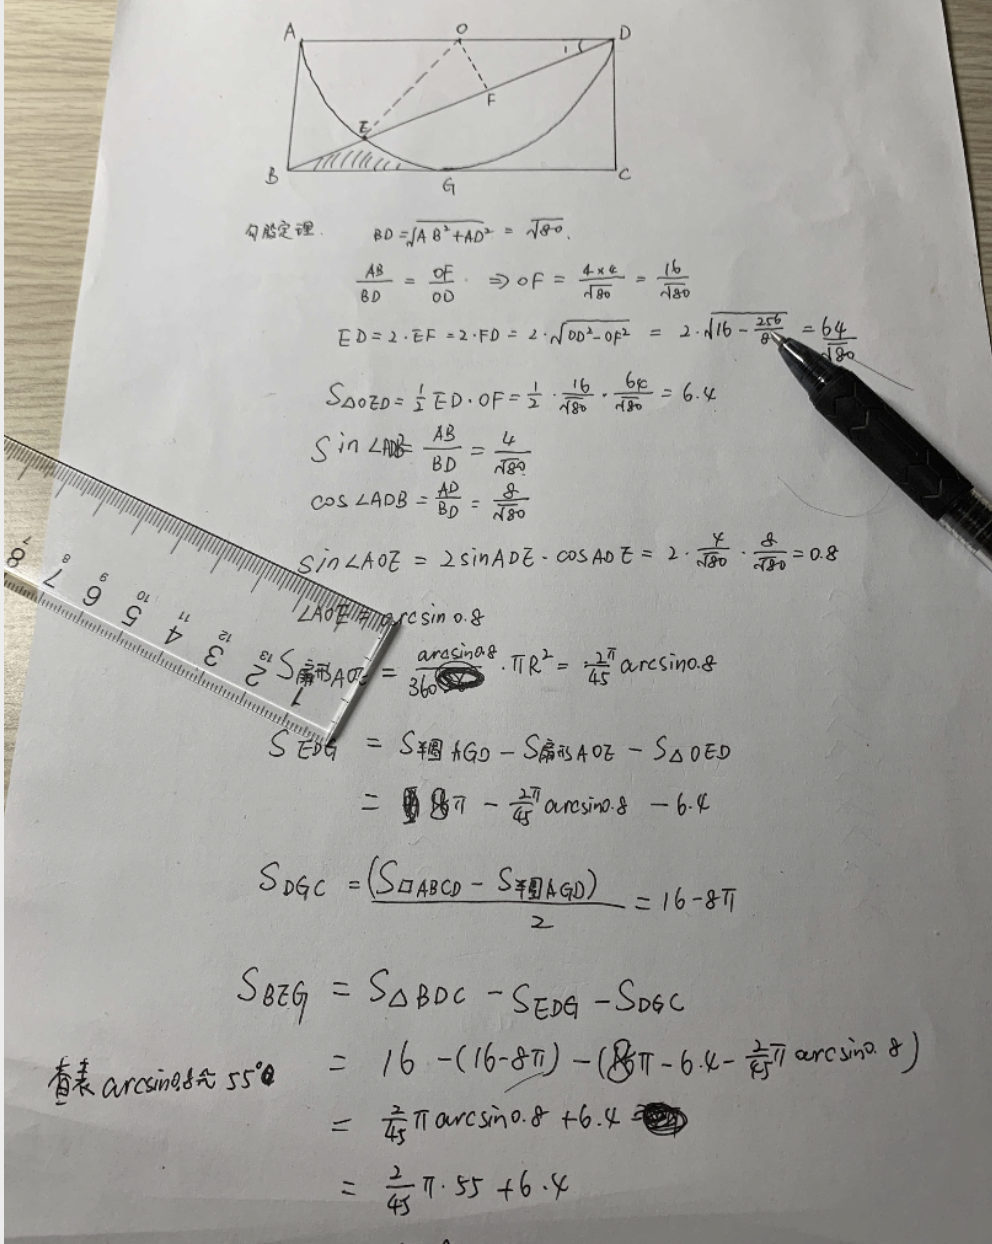 A O D
1
E F
B G C
勾股定理. BD = √AB²+AD² = √80.
AB/BD = OF/OD ⇒ OF = 4×4/√80 = 16/√80
ED = 2·EF = 2·FD = 2·√OD²-OF² = 2·√16 - 256/8 = 64/√80
S△OED = 1/2 ED·OF = 1/2 · 16/√80 · 64/√80 = 6.4
Sin∠ADB = AB/BD = 4/√80
cos∠ADB = AD/BD = 8/√80
Sin∠AOE = 2sinADE·cosADE = 2 · 4/√80 · 8/√80 = 0.8
∠AOE = arcsin0.8
S扇形AOE = arcsin0.8/360 · πR² = 2π/45 arcsin0.8
S EDG = S半圆AGD - S扇形AOE - S△OED
= 8π - 2π/45 arcsin0.8 - 6.4
S DGC = (S□ABCD - S半圆AGD)/2 = 16-8π
S BEG = S△BDC - S EDG - S DGC
= 16 - (16-8π) - (8π - 6.4 - 2/45 π arcsin0.8)
查表 arcsin0.8≈55°
= 2/45 π arcsin0.8 + 6.4
= 2/45 π·55 + 6.4
7 8 9 10 11 12 13
8 7 6 5 4 3 2 1